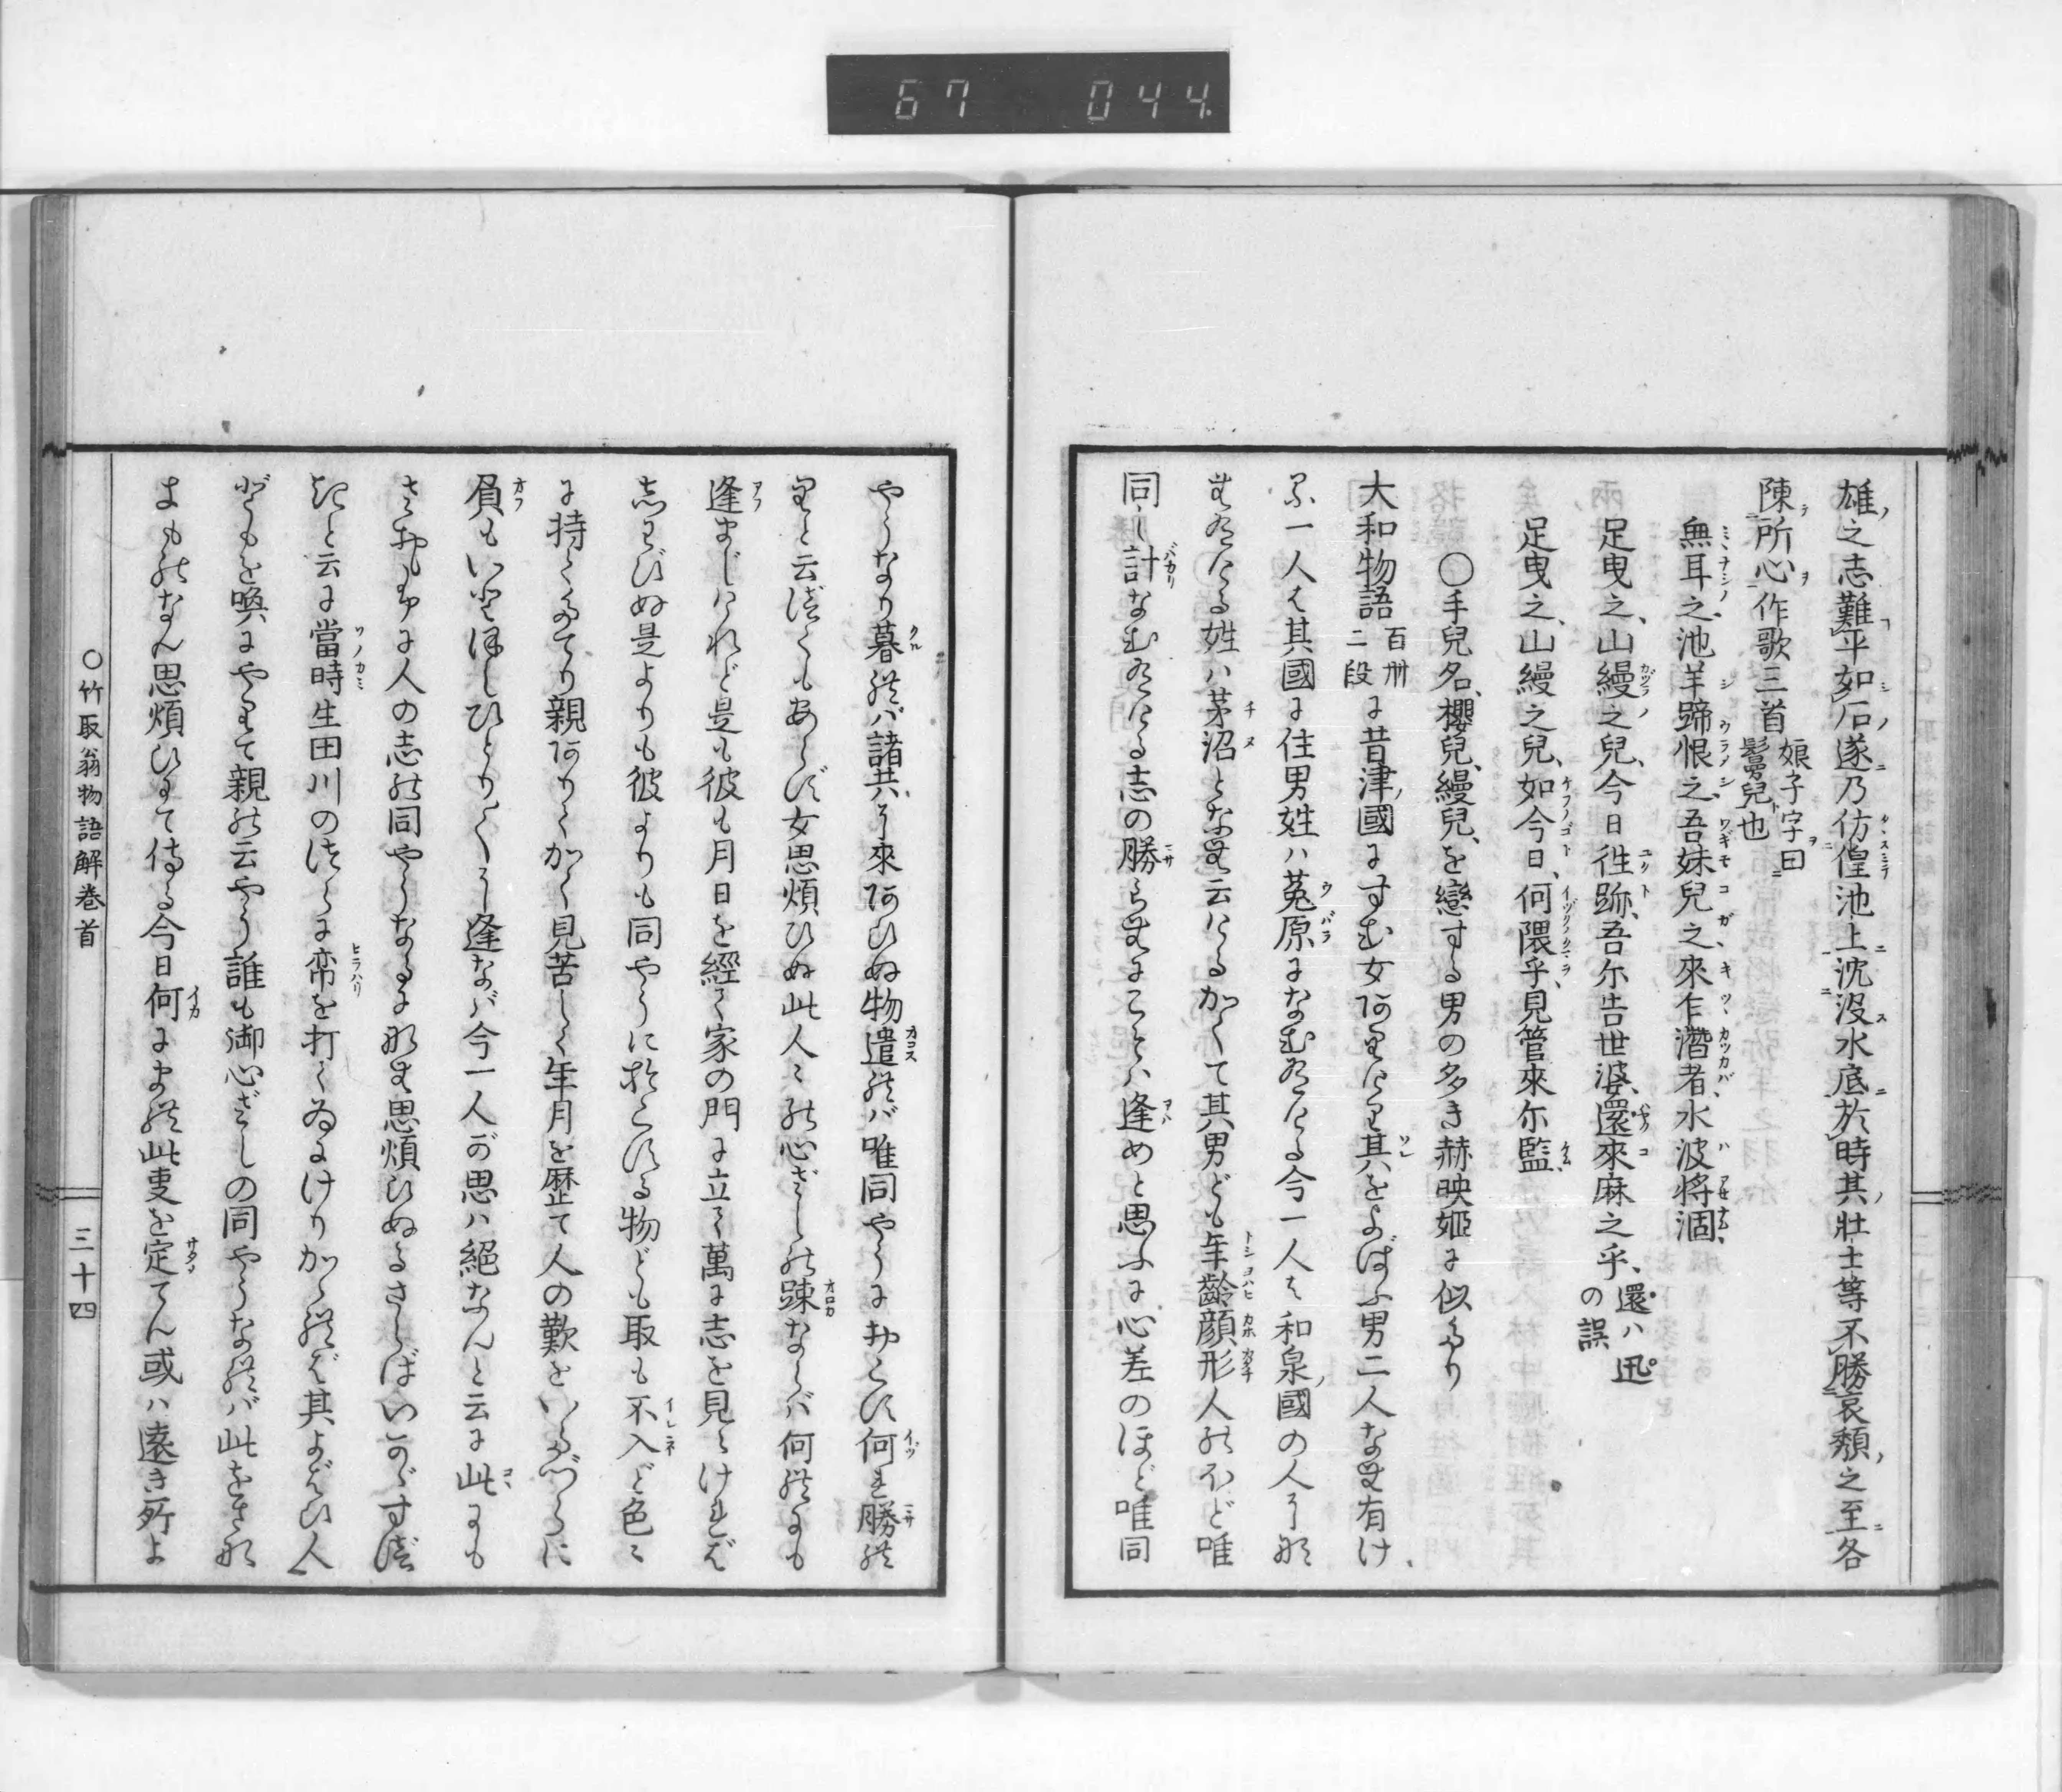 67 044
雄之志難平如石遂乃仿偟池上沈没水底於時其壮士等不勝哀頽之至各
陳所心作歌三首 娘子字曰鬘兒也
無耳之池羊蹄恨之吾妹兒之來乍潛者水波將涸
足曳之、山縵之兒、今日徃跡、吾尓告世婆、還來麻之乎、還ハ迅の誤
足曳之、山縵之兒、如今日、何隈乎、見管來尓監、
○手兒名、櫻兒、縵兒、を戀する男の多き赫映姫に似たり
大和物語百卌二段に昔津國にすむ女阿りけり其をよばふ男二人なむ有け
る一人は其國に住男姓ハ菟原になむ有ける今一人は和泉國の人にな
む有ける姓ハ茅沼となむ云けるかくて其男ども年齢顔形人のほど唯
同じ計なむ有ける志の勝らむにこそハ逢めと思ふに心差のほど唯同
やうなり暮れバ諸共に來阿ひぬ物遣れバ唯同やうにおこす何れ勝れ
りと云べくもあらず女思煩ひぬ此人々の心ざしの踈ならバ何れにも
逢まじけれど是も彼も月日を經て家の門に立て萬に志を見えければ
志わびぬ是よりも彼よりも同やうにおこする物ども取も不入ど色々
に持てたてり親阿りてかく見苦しく年月を歴て人の歎をいたづらに
負もいとほしひとり〳〵に逢なバ今一人が思ハ絶なんと云に此にも
さおもふに人の志の同やうなるになむ思煩ひぬるさらばいかゞすべ
きと云に當時生田川のつらに帟を打てゐにけりかゝれば其よばひ人
どもを喚にやりて親の云やう誰も御心ざしの同やうなれバ此をさな
きものなん思煩ひにて侍る今日何にまれ此事を定てん或ハ遠き所よ
○竹取翁物語解巻首
三十四